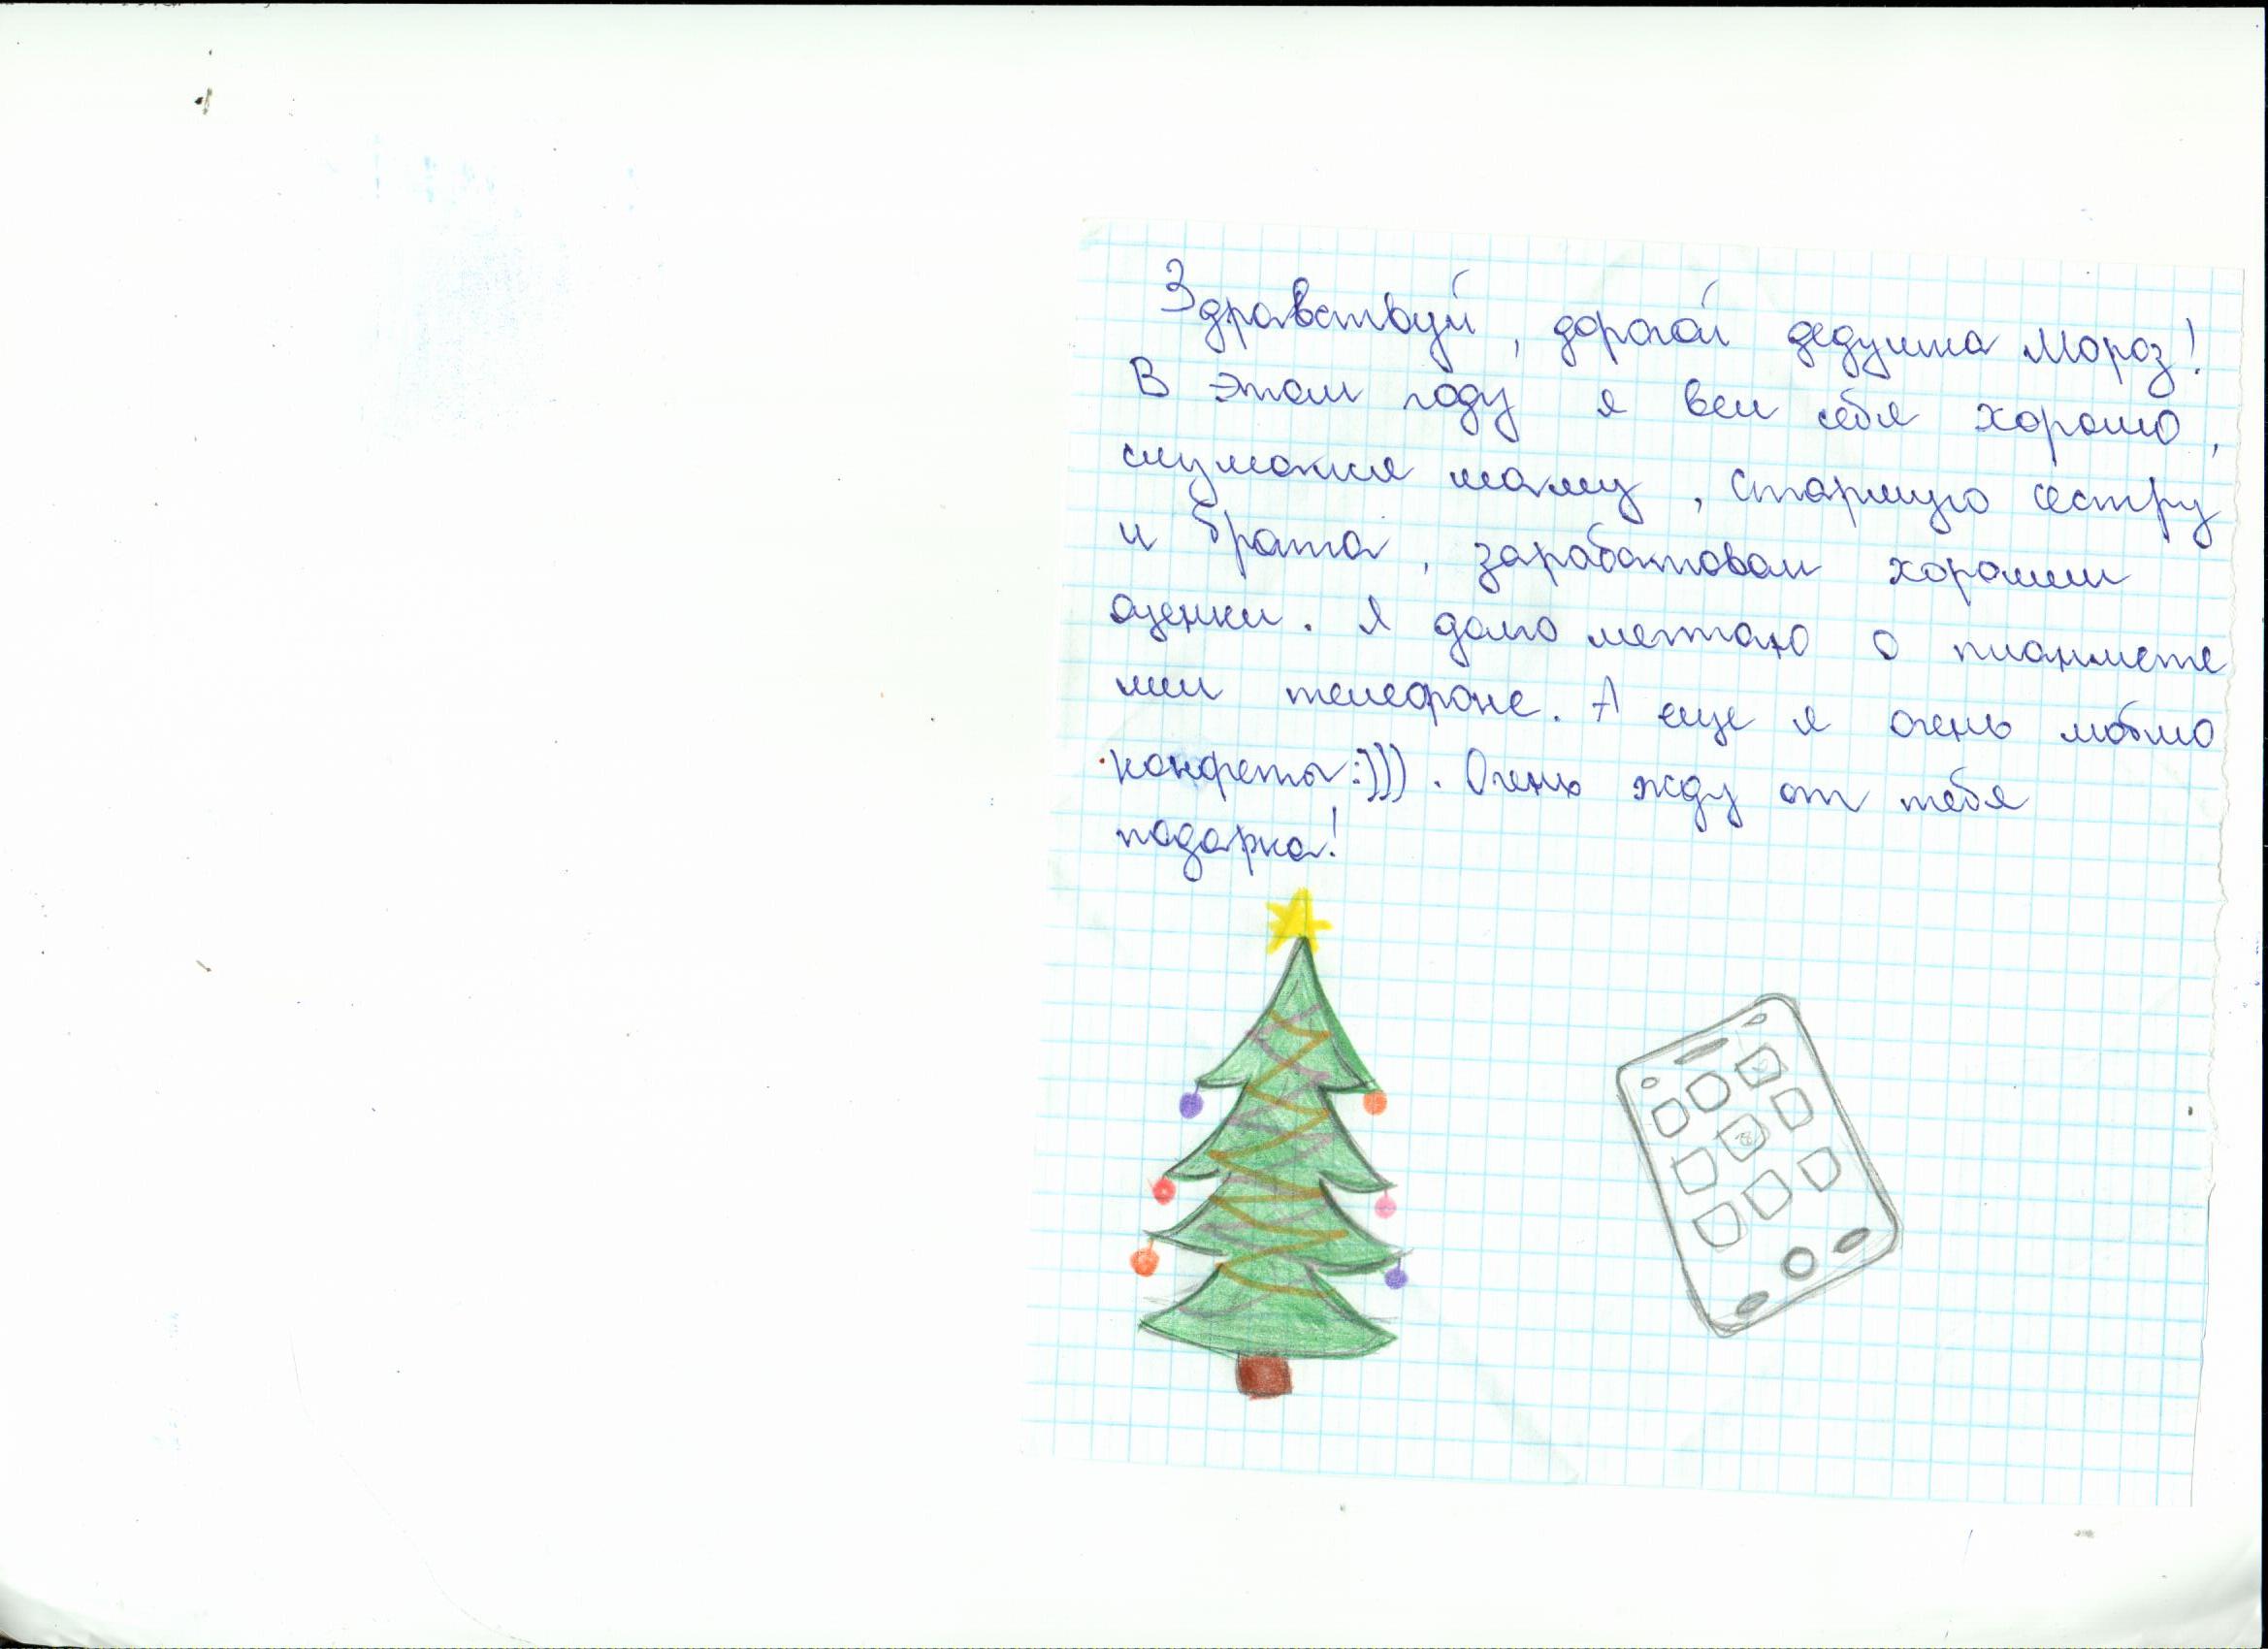 Здравствуй, дорогой дедушка Мороз!
В этом году я вел себя хорошо,
слушался маму, старшую сестру
и брата, зарабатовал хорошии
оценки. Я долго мечтаю о планшете
или телефоне. А еще я очень люблю
конфеты:))). Очень жду от тебя
подарка!